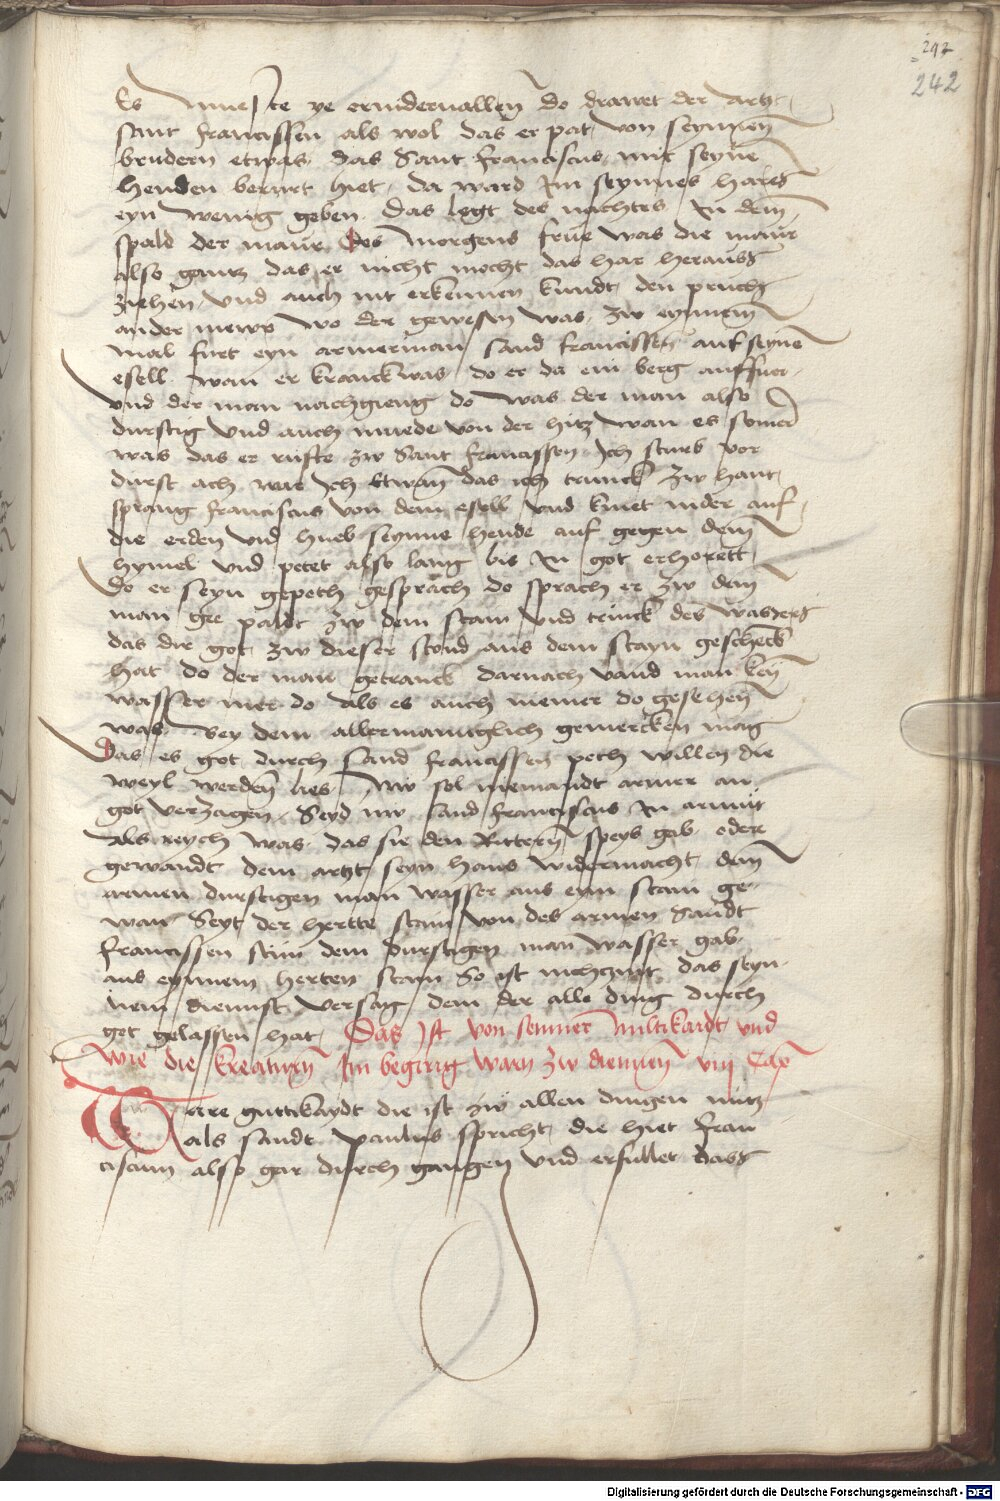 242
242
Es mueste ye ernidervallen do drawet der artzt
sant francissen als wol das er pat von seynnen
brudern etwas das Sant franciscus mit seyne
henden berurt hiet / da ward Im seynnes hares
eyn wenig geben. Das legt des nachtes In dem
spald der maur Des morgens frue was die maur
also gantz das er nicht mocht das har herauss
ziehen / vnd auch nit erkennen kundt / den pruch
ander mewr wo der gewesen was / zw eynnem
mal furt eyn armerman sand francissen auf seyne
esell. wan er kranck was / do er da ein berg auffuer
vnd der man nachgieng do was der man also
durstig vnd auch muede von der hitz wan es somer
was das er rufte zw Sant francissen Ich stirb vor
durst ach war Ich etwan das ich trunck zw hant
sprang franciscus von dem esell vnd kniet nider auf
die erden vnd hueb seynne hende auf gegen dem
hymel vnd petet also lang bis In got erhorett
Do er seyn gepeth gesprach do sprach er zw dem
man gee paldt zw dem stain vnd trinck des wassers
das dir got zw dieser stund aus dem stayn geschenckt
hat do der man getranck darnach vand man keyn
wasser mer do als es auch niemer do gesehen
was. Bey dem allermaniglich gemercken mag
Das es got durch sand francissen peth willen die
weyl werden lies. Nw sol niemandt armer an
got verzagen. Seyd nw sand franciscus In armut
als reych was das sie den Rittern speys gab. oder
gewandt dem artzt seyn haus widermacht dem
armen durstigen man wasser aus eym stain ge-
wan Seyt der hertte stain von des armen Sandt
francissen stim dem durstigen man wasser gab
aus eynnem herten stain So ist nichznit das seyn-
nem diennst versag / dem der alle ding durch
got gelassen hat. Das Ist von senner miltikaidt vnd
wie die kreaturn Im begirig warn zw diennen viij Cap
Ware guttikaydt die ist zw allen dingen nutz
als sandt paulus spricht / die hiet fran
ciscum also gar durch gangen vnd erfullet dass
Digitalisierung gefördert durch die Deutsche Forschungsgemeinschaft - DFG